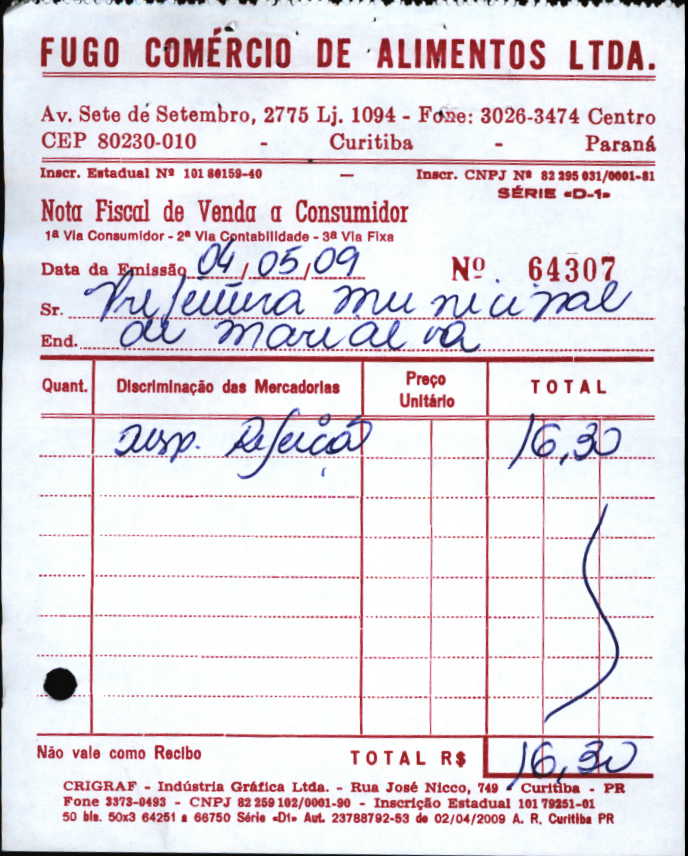 FUGO COMÉRCIO DE ALIMENTOS LTDA.
Av. Sete de Setembro, 2775 Lj. 1094 - Fone: 3026-3474 Centro
CEP 80230-010 - Curitiba - Paraná
Inscr. Estadual Nº 101 80159-40 — Inscr. CNPJ Nº 82 295 031/0001-81
SÉRIE «D-1»
Nota Fiscal de Venda a Consumidor
1ª Via Consumidor - 2ª Via Contabilidade - 3ª Via Fixa
Data da Emissão 04/05/09 Nº 64307
Sr. Prefeitura municipal
End. de marialva
Quant. Discriminação das Mercadorias Preço Unitário TOTAL
desp. Refeição 16,30
Não vale como Recibo TOTAL R$ 16,30
CRIGRAF - Indústria Gráfica Ltda. - Rua José Nicco, 749 - Curitiba - PR
Fone 3373-0493 - CNPJ 82 259 102/0001-90 - Inscrição Estadual 101 79251-01
50 bls. 50x3 64251 a 66750 Série «D1» Aut. 23788792-53 de 02/04/2009 A. R. Curitiba PR